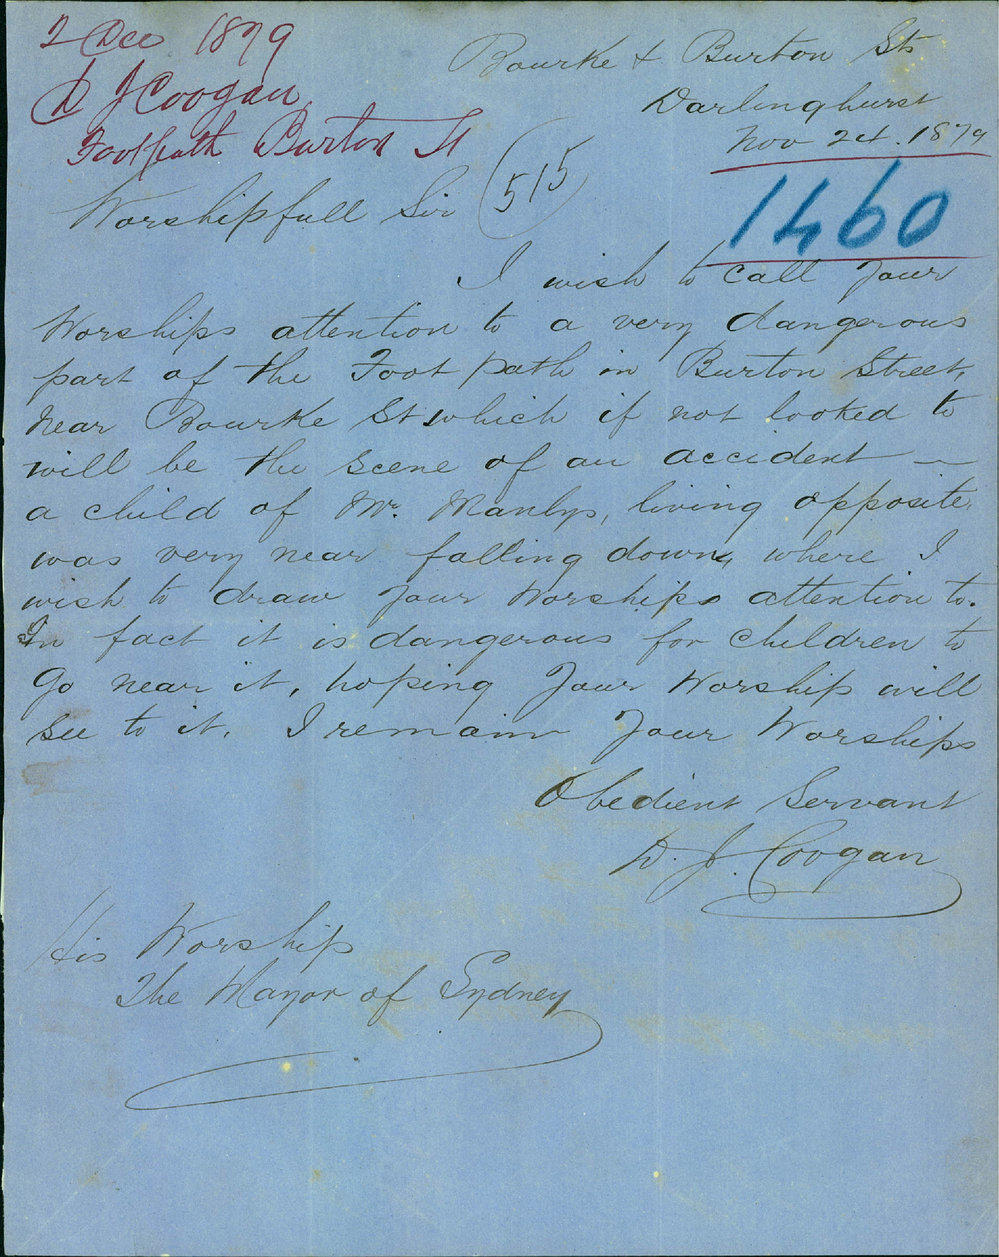 2 Dec 1879
D J Coogan
Footpath Burton St
Bourke & Burton Sts
Darlinghurst
Nov 24. 1879
515
1460
Worshipfull Sir
I wish to call Your
Worships attention to a very dangerous
part of the Foot path in Burton Street,
near Bourke St which if not looked to
will be the scene of an accident —
a child of Mr. Manlys, living opposite,
was very near falling down, where I
wish to draw Your Worships attention to.
In fact it is dangerous for children to
Go near it, hoping Your Worship will
see to it. I remain Your Worships
Obedient Servant
D. J. Coogan
His Worship
The Mayor of Sydney